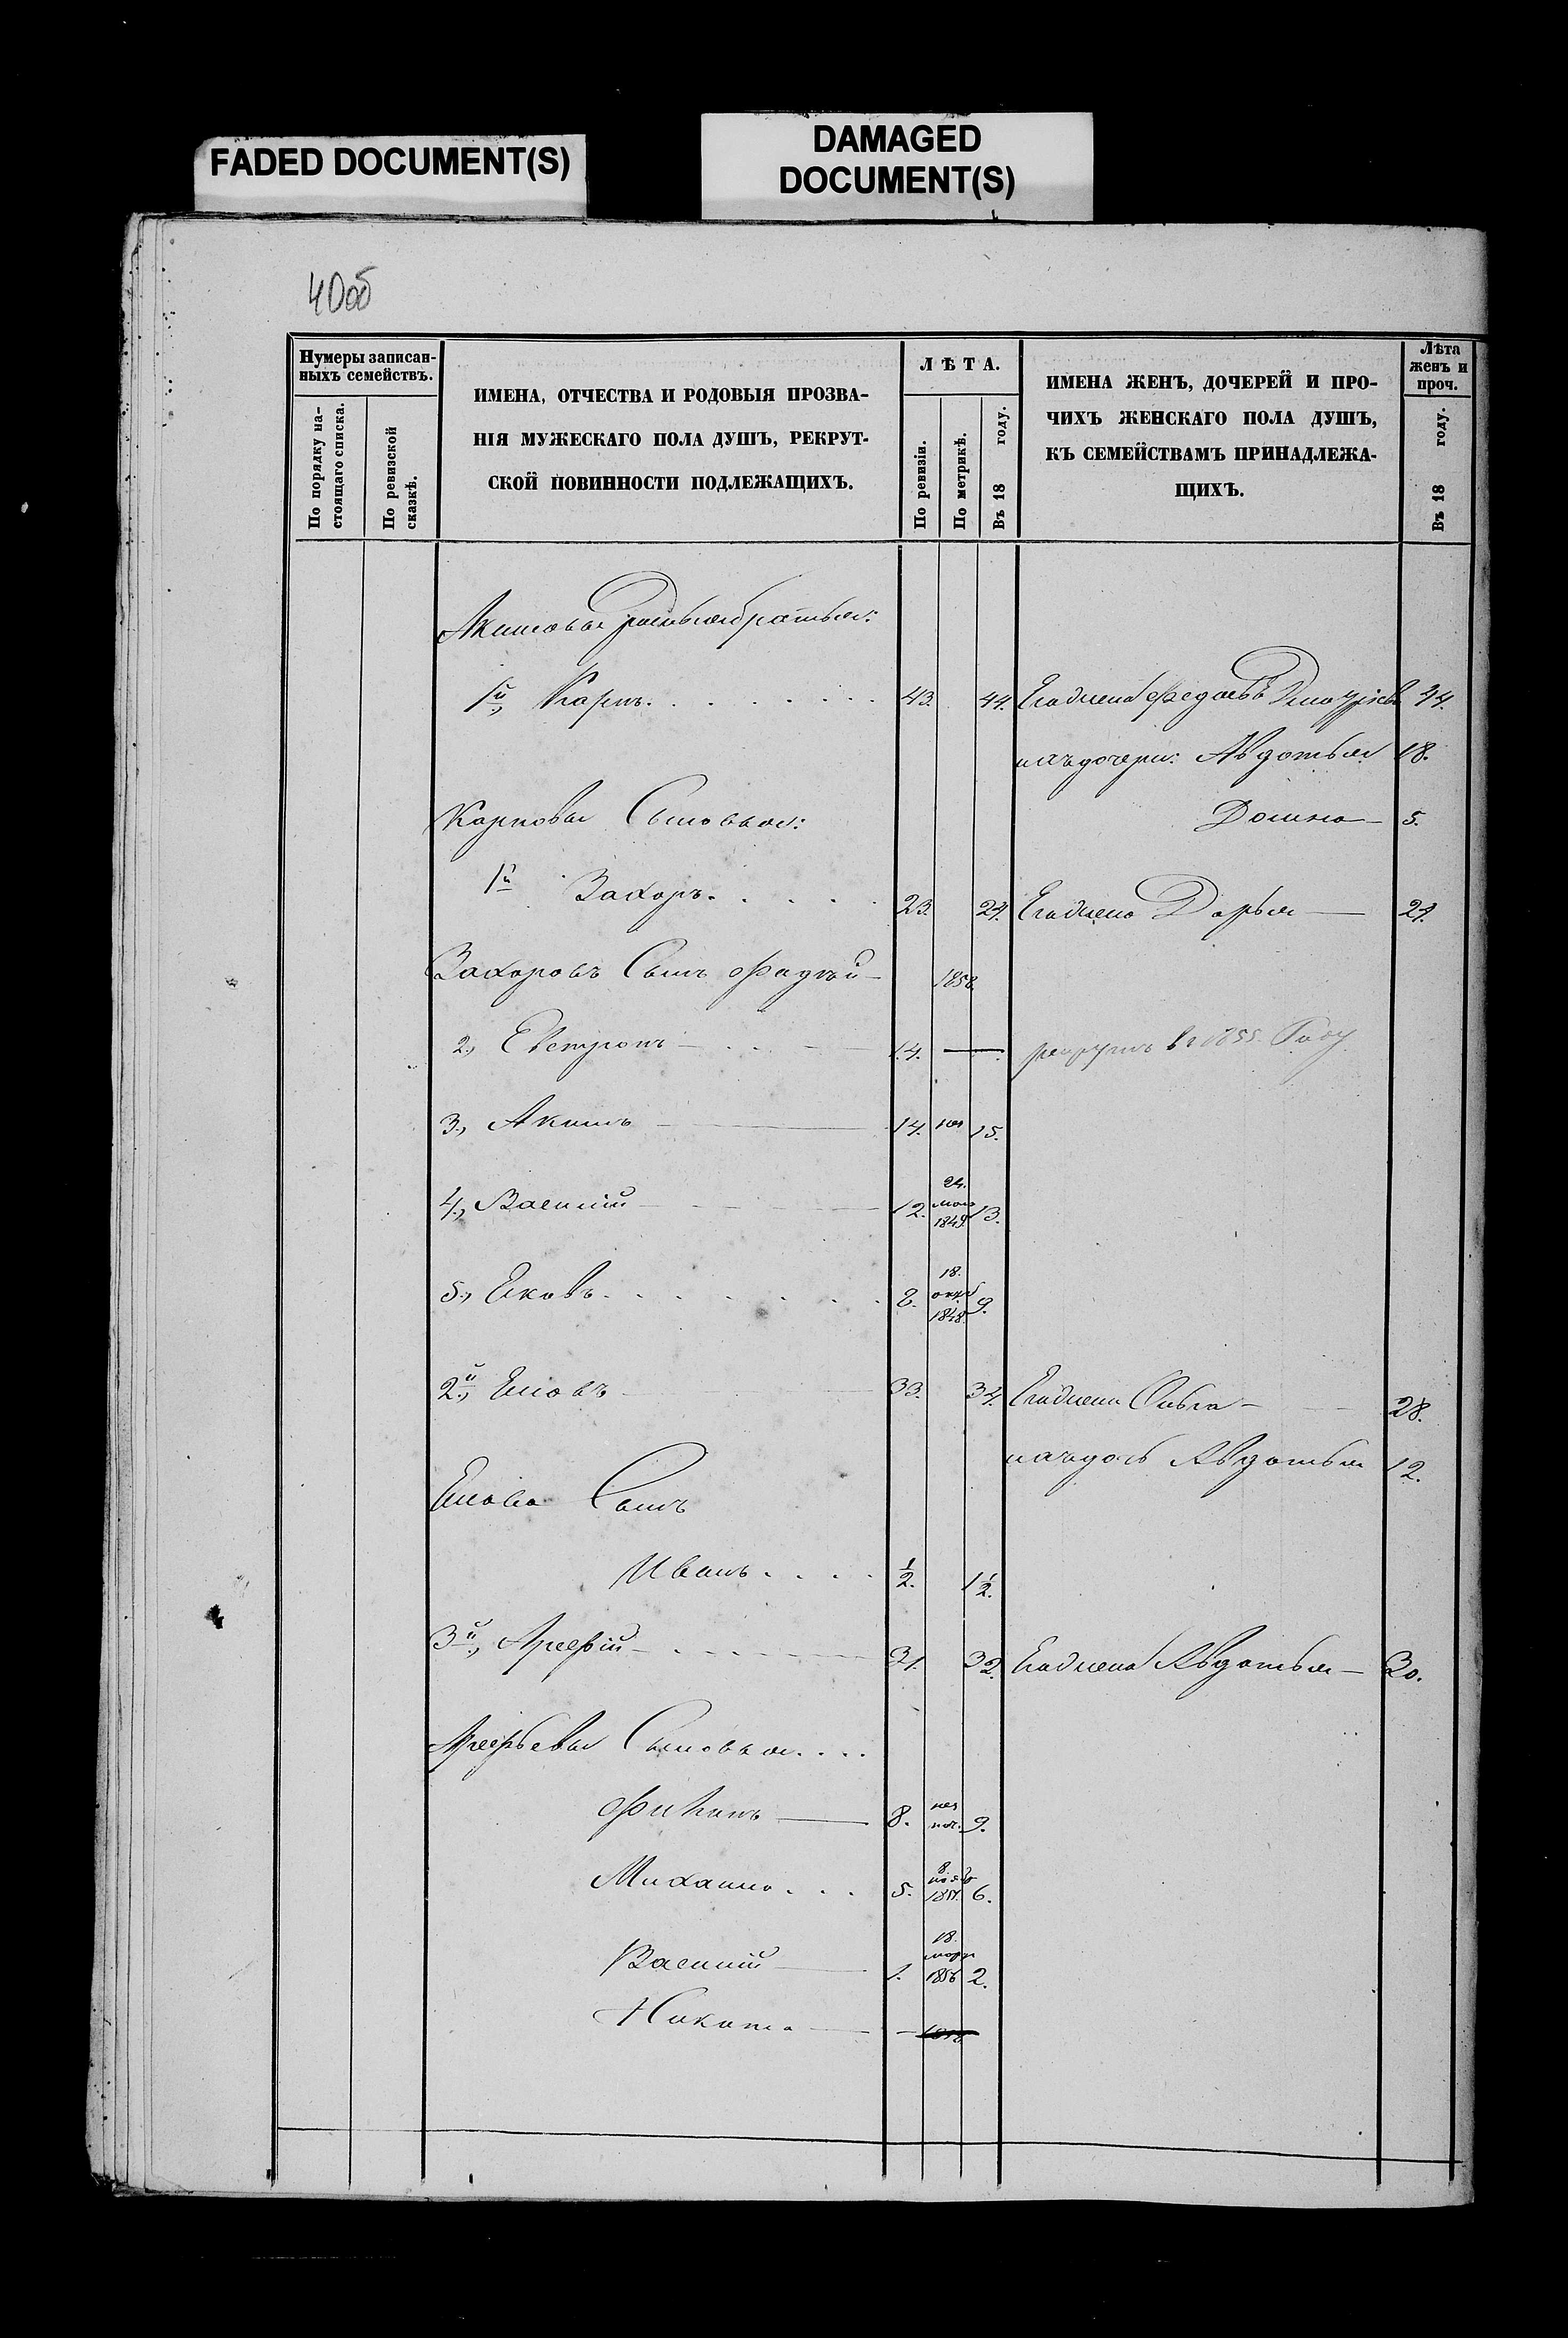 FADED DOCUMENT(S)
DAMAGED
DOCUMENT(S)
40об
Нумеры записан-
ныхъ семействъ.
По порядку на-
стоящаго списка.
По ревизской
сказкѣ.
ИМЕНА, ОТЧЕСТВА И РОДОВЫЯ ПРОЗВА-
НІЯ МУЖЕСКАГО ПОЛА ДУШЪ, РЕКРУТ-
СКОЙ ПОВИННОСТИ ПОДЛЕЖАЩИХЪ.
ЛѢТА.
По ревизіи.
По метрикѣ.
Въ 18 году.
ИМЕНА ЖЕНЪ, ДОЧЕРЕЙ И ПРО-
ЧИХЪ ЖЕНСКАГО ПОЛА ДУШЪ,
КЪ СЕМЕЙСТВАМЪ ПРИНАДЛЕЖА-
ЩИХЪ.
Лѣта
женъ и
проч.
Въ 18 году.
Акимовы братья:
1й, Карпъ. 43. 44. Егожена 44.
ихъ дочери: Авдотья 18.
Карповы Сыновья: Домна 5.
1й Захаръ. 23. 24. Егожена Дарья 24.
Захаровъ Сынъ Фадѣй 1858
2, 14. рекрутъ в 1855. Году
3, Акимъ 14. 15.
4, Василій 12. 24. мая 1849. 13.
5, Яковъ. 8. 18. окт 1848. 9.
2й, Іовъ 33. 34. Егожена Ольга 28.
ихъ дочь Авдотья 12.
Сынъ
Иванъ. ½. 1½.
3й, Арефій 31. 32. Егожена Авдотья 30.
Арефьевы Сыновья
8. 9.
Михаила. 5. 8. нояб 1851. 6.
Василій 1. 18. мар 1856 2.
Никита